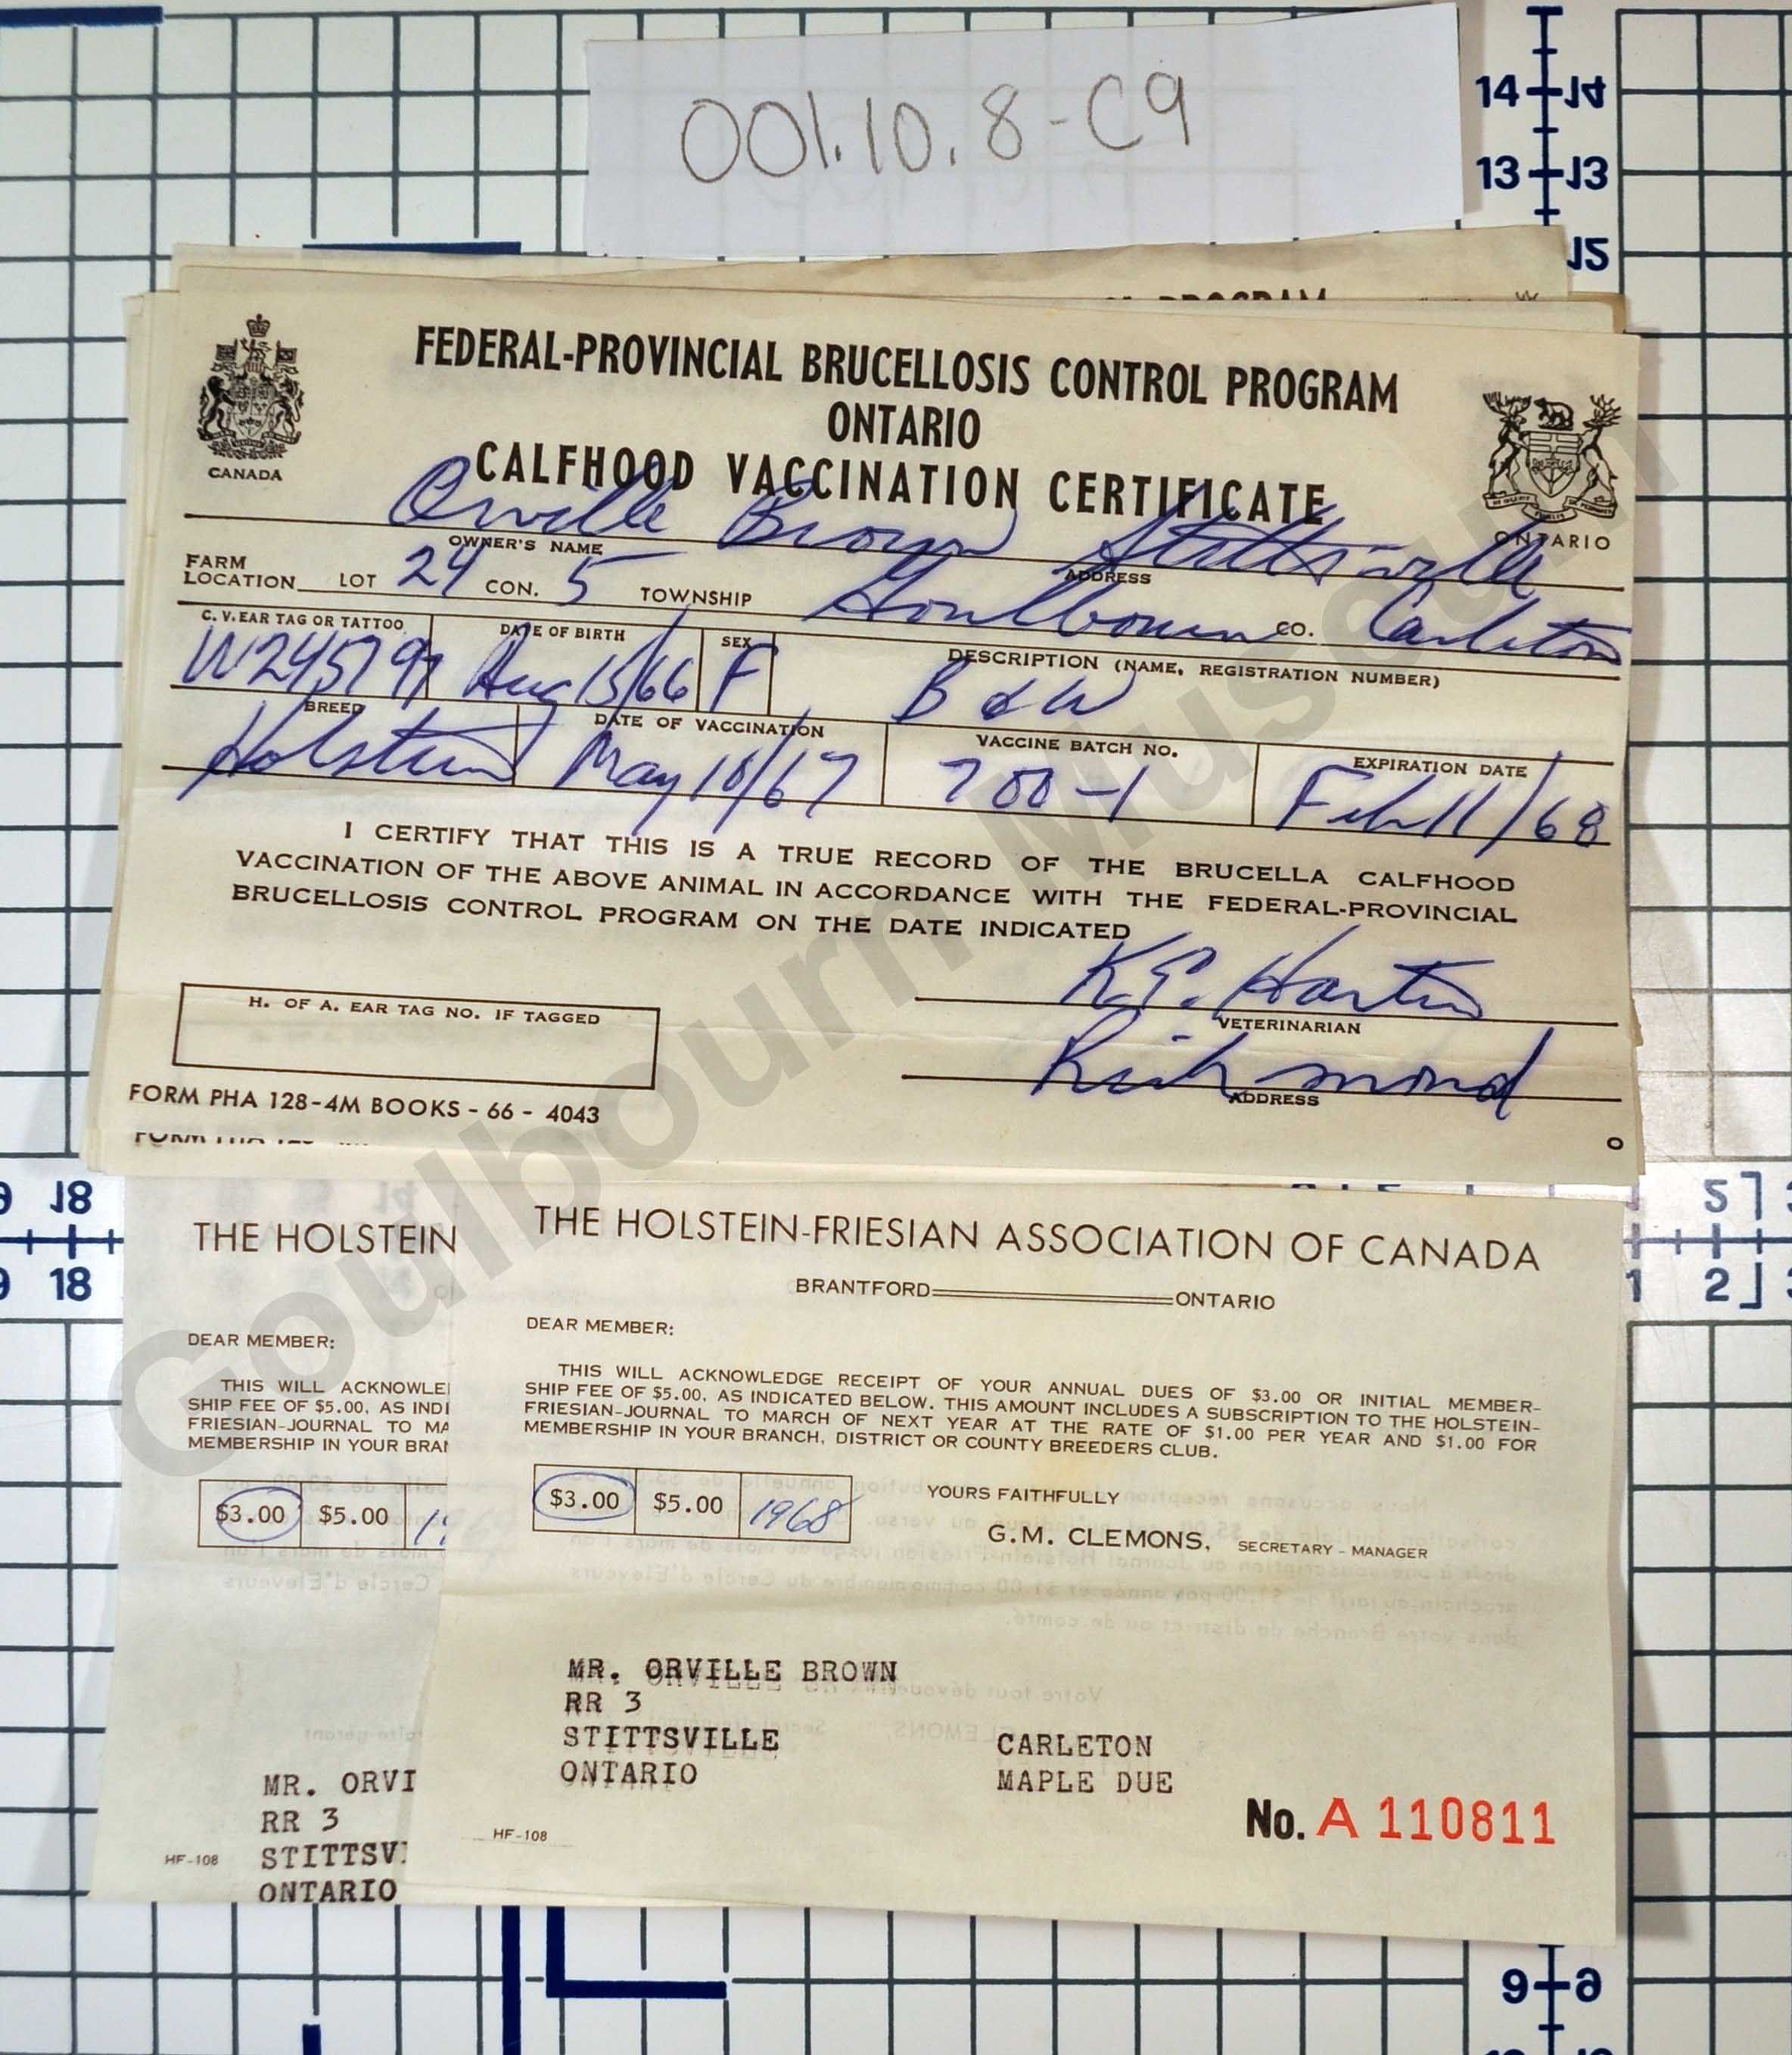 001.10.8-C9
14
13
CANADA
FEDERAL-PROVINCIAL BRUCELLOSIS CONTROL PROGRAM
ONTARIO
CALFHOOD VACCINATION CERTIFICATE
ONTARIO
Orville Brown Stittsville
OWNER'S NAME ADDRESS
FARM
LOCATION LOT 24 CON. 5 TOWNSHIP Goulbourn CO. Carleton
C. V. EAR TAG OR TATTOO DATE OF BIRTH SEX DESCRIPTION (NAME, REGISTRATION NUMBER)
W24579 Aug 15/66 F B & W
BREED DATE OF VACCINATION VACCINE BATCH NO. EXPIRATION DATE
Holstein May 10/67 700-1 Feb 11/68
I CERTIFY THAT THIS IS A TRUE RECORD OF THE BRUCELLA CALFHOOD
VACCINATION OF THE ABOVE ANIMAL IN ACCORDANCE WITH THE FEDERAL-PROVINCIAL
BRUCELLOSIS CONTROL PROGRAM ON THE DATE INDICATED
K.E. Hartin
VETERINARIAN
Richmond
ADDRESS
H. OF A. EAR TAG NO. IF TAGGED
FORM PHA 128-4M BOOKS - 66 - 4043
Goulbourn Museum
18
18
1 2
THE HOLSTEIN
DEAR MEMBER:
THIS WILL ACKNOWLE
SHIP FEE OF $5.00, AS INDI
FRIESIAN-JOURNAL TO MA
MEMBERSHIP IN YOUR BRAN
$3.00 $5.00 19
MR. ORVI
RR 3
STITTSV
ONTARIO
HF-108
THE HOLSTEIN-FRIESIAN ASSOCIATION OF CANADA
BRANTFORD ONTARIO
DEAR MEMBER:
THIS WILL ACKNOWLEDGE RECEIPT OF YOUR ANNUAL DUES OF $3.00 OR INITIAL MEMBER-
SHIP FEE OF $5.00, AS INDICATED BELOW. THIS AMOUNT INCLUDES A SUBSCRIPTION TO THE HOLSTEIN-
FRIESIAN-JOURNAL TO MARCH OF NEXT YEAR AT THE RATE OF $1.00 PER YEAR AND $1.00 FOR
MEMBERSHIP IN YOUR BRANCH, DISTRICT OR COUNTY BREEDERS CLUB.
$3.00 $5.00 1968
YOURS FAITHFULLY
G.M. CLEMONS, SECRETARY - MANAGER
MR. ORVILLE BROWN
RR 3
STITTSVILLE CARLETON
ONTARIO MAPLE DUE
No. A 110811
HF-108
9